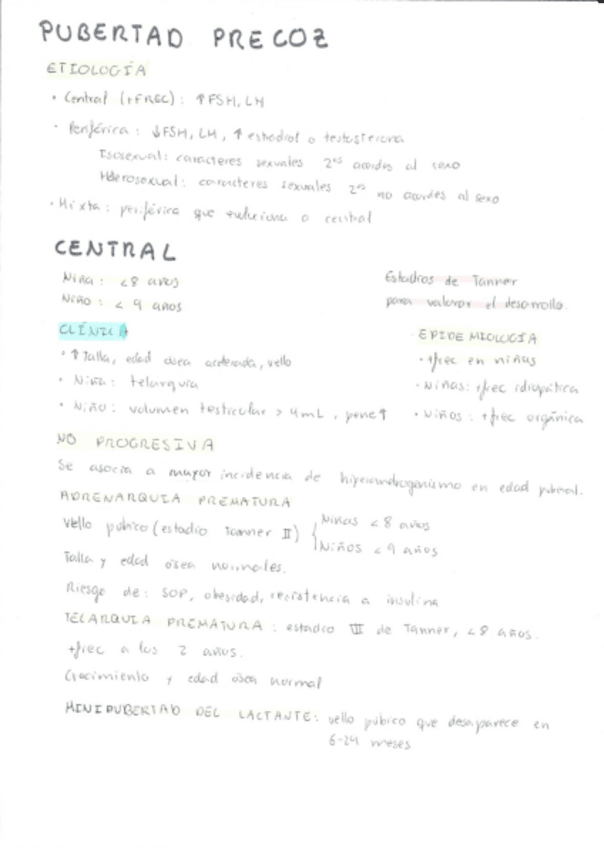 PUBERTAD PRECOZ
ETIOLOGÍA
• Central (+FREC): ↑FSH, LH
• Periférica: ↓FSH, LH, ↑ estradiol o testosterona
Isosexual: caracteres sexuales 2os acordes al sexo
Heterosexual: caracteres sexuales 2os no acordes al sexo
• Mixta: periférica que evoluciona a central
CENTRAL
Niña: <8 años
Niño: < 9 años
Estadios de Tanner
para valorar el desarrollo.
CLÍNICA
• ↑Talla, edad ósea acelerada, vello
• Niña: telarquia
• Niño: volumen testicular > 4mL, pene↑
EPIDEMIOLOGÍA
• +frec en niñas
• Niñas: +frec idiopática
• Niños: +frec orgánica
NO PROGRESIVA
Se asocia a mayor incidencia de hiperandrogenismo en edad puberal.
ADRENARQUIA PREMATURA
Vello púbico (estadio Tanner II) { Niñas <8 años
Niños <9 años
Talla y edad ósea normales.
Riesgo de: SOP, obesidad, resistencia a insulina
TELARQUIA PREMATURA: estadio III de Tanner, <8 años.
+frec a los 2 años.
Crecimiento y edad ósea normal
MINIPUBERTAD DEL LACTANTE: vello púbico que desaparece en
6-24 meses